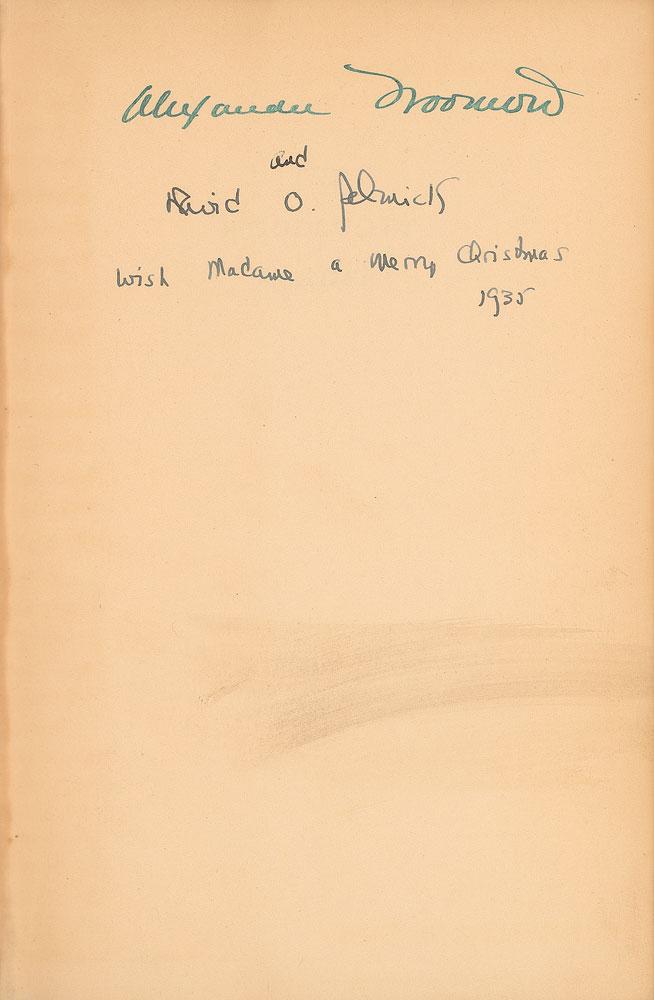 Alexander Woollcott
and
David O. Selznick
Wish Madame a Merry Christmas
1935